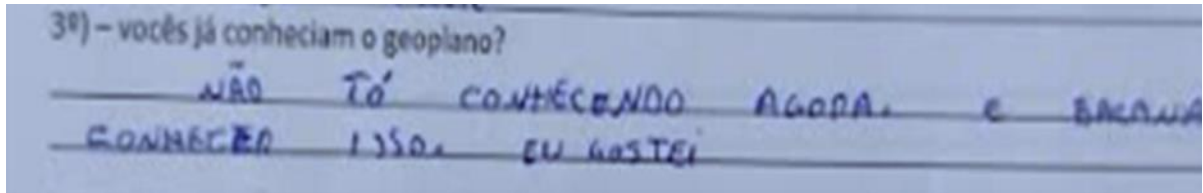 3º) – vocês já conheciam o geoplano?
NÃO TÓ CONHECENDO AGORA. e BACANA
CONHECER ISSO. EU GOSTEI